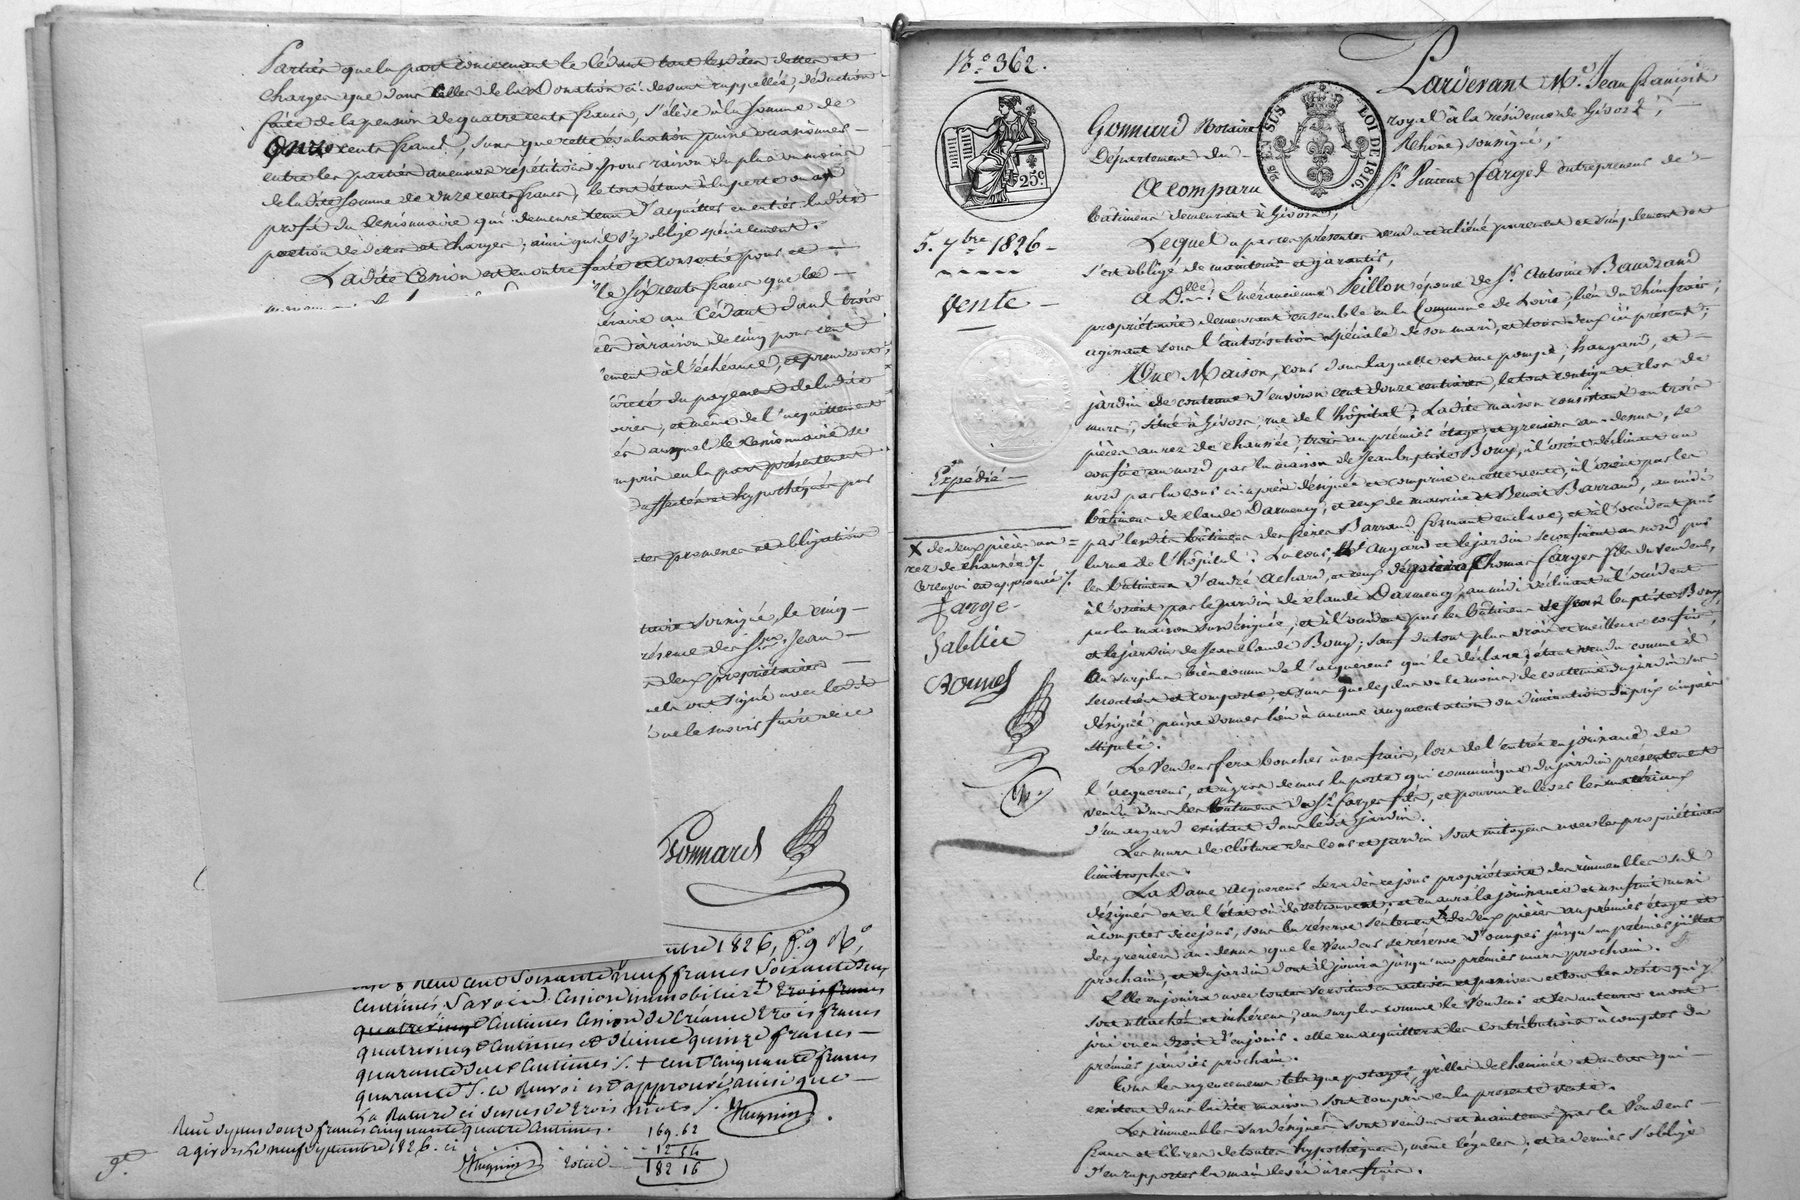 Parties que la part concernant le Cédant tant les dites dettes et
charges que dans celles de la Donation ci devant rappellée, déduction
faite de la pension de quatre cents francs, s'élève à la somme de
onze cents francs, sans que cette évaluation puisse occasionner
entre les parties aucunes répétitions pour raison du plus ou moins
de la dite somme de onze cents francs, le tout étant à la perte ou au
profit du Cessionnaire qui demeure tenu d'acquitter en entier ladite
portion de dettes et charges, ainsi qu'il s'y oblige spécialement.
La dite Cession est en outre faite et consentie pour et
le six cents francs que le
au Cédant dans trois
à raison de cinq pour cent
à l'échéance, et
du payement de la dite
et même de l'acquittement
auquel le Cessionnaire se
en la part présentement
affectée et hypothéquée par
promesse et obligation
soussigné, le cinq
présence des Srs. Jean
deux propriétaires
ont signé avec le dit
que le savoir faire de ce
Bonnard
1826, f.° 9 R.°,
neuf cent soixante neuf francs soixante deux
centimes Savoir: Cession immobilière + trois francs
quatrevingt centimes Cession de Créance trois francs
quatrevingt centimes et dixme quinze francs
quarante deux centimes /. + cent cinquante francs
quarante /. ce Renvoi est approuvé ainsi que
La Rature ci dessus de trois mots /.
Reçu douze francs cinquante quatre centimes.
a givors Le neuf Septembre 1826. ci
169.62
12 54
total 182 16
N.° 362.
25c
5. 7bre 1826
Vente
Expédié
X de deux pièces au
rez de chaussée /.
Ce renvoi est approuvé /.
farge
Sablier
Bonnard
EN SUS
LOI DE 1816.
Pardevant Me. Jean françois
Gonnard Notaire royal à la résidence de Givors,
Département du Rhône, soussigné;
A comparu Sr. Vincent farge entrepreneur de
bâtimens demeurant à Givors;
Lequel a par ces présentes vendu et aliéné purement et simplement et
s'est obligé de maintenir et garantir,
A Dlle. Peillon épouse de Sr. Antoine Baudrand
propriétaire demeurant ensemble en la Commune de Loire, lieu du Chinfrais,
agissant sous l'autorisation spéciale de son mari, et tous deux ici présents;
Une Maison, cour dans laquelle est une pompe, hangard, et
jardin de contenue d'environ cent douze centiares, le tout contigu et clos de
murs, situé à Givors, rue de l'hôpital. Ladite maison consistant en trois
pièces au rez de chaussée, trois au premier étage, et greniers au-dessus, se
confine au nord par la maison de Jean baptiste Bouy, à l'orient déclinant au
nord par la cour ci-après désignée et comprise en cette vente, à l'orient par les
bâtimens de Claude Darmency, et ceux de maurice et Benoit Barraud, au midi
par les dits bâtimens des frères Barraud formant enclave, et à l'occident par
la rue de l'hôpital. La cour, hangard et le jardin se confinent au nord par
les bâtimens d'andré achard, et ceux de Thomas farge fils du vendeur,
à l'orient par le jardin de claude Darmency, au midi déclinant à l'occident
par la maison susdésignée, et à l'occident par les bâtimens de Jean baptiste Bouy,
et le jardin de Jean Claude Bouy; sauf du tout plus vrais et meilleurs confins,
Au surplus bien connu de l'acquereur qui le déclare; étant vendu comme il
se contient et comporte, et sans que le plus ou le moins de contenue du jardin sus
désigné puisse donner lieu à aucune augmentation ou diminution du prix ci-après
stipulé.
Le Vendeur fera boucher à ses frais, lors de l'entrée en jouissance de
l'acquereur, et à gros de mur la porte qui communique du jardin présentement
vendu dans les bâtimens du Sr. farge fils, et pourra enlever les matériaux
d'un angard existant dans le dit jardin.
Les murs de clôture des cour et jardin sont mitoyens avec les propriétaires
limitrophes.
La Dame acquereur sera dès ce jour propriétaire des immeubles sus
désignés et en l'état où ils se trouvent; et en aura la jouissance et usufruit aussi
à compter de ce jour, sous la réserve seulement X de deux pièces au premier étage et
des greniers au-dessus que le Vendeur se réserve d'occuper jusqu'au premier juillet
prochain, et du jardin dont il jouira jusqu'au premier mars prochain.
Elle en jouira avec toutes servitudes actives et passives et tous les droits qui y
sont attachés et inhérens, au surplus comme le Vendeur et ses auteurs en ont
joui ou eu droit d'en jouir. elle en acquittera les contributions à compter du
premier janvier prochain.
Tous les agencemens tels que potager, grilles de cheminée et autres qui
existent dans ladite maison sont compris en la présente vente.
Les immeubles susdésignés sont vendus et maintenus par le Vendeur
francs et libres de toutes hypothèques, même légales; et ce dernier s'oblige
d'en rapporter la main levée à ses frais.